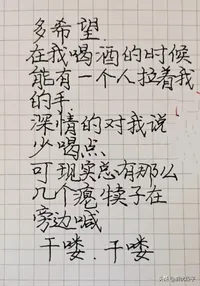 多希望.
在我喝酒的时候
能有一个人拉着我
的手.
深情的对我说
少喝点
可现实总有那么
几个瘪犊子在
旁边喊
干喽.干喽